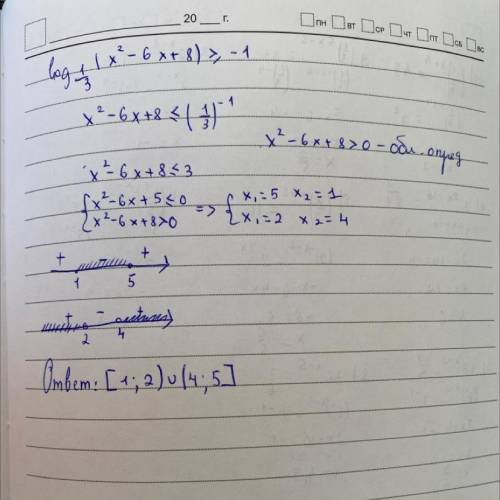 20 г. ПН ВТ СР ЧТ ПТ СБ ВС
log_{1/3} (x² - 6x + 8) ≥ -1
x² - 6x + 8 ≤ (1/3)⁻¹
x² - 6x + 8 > 0 - обл. опред
x² - 6x + 8 ≤ 3
{x² - 6x + 5 ≤ 0 => {x₁ = 5 x₂ = 1
{x² - 6x + 8 > 0 {x₁ = 2 x₂ = 4
+ +
1 5
+ - +
2 4
Ответ: [1; 2) ∪ (4; 5]